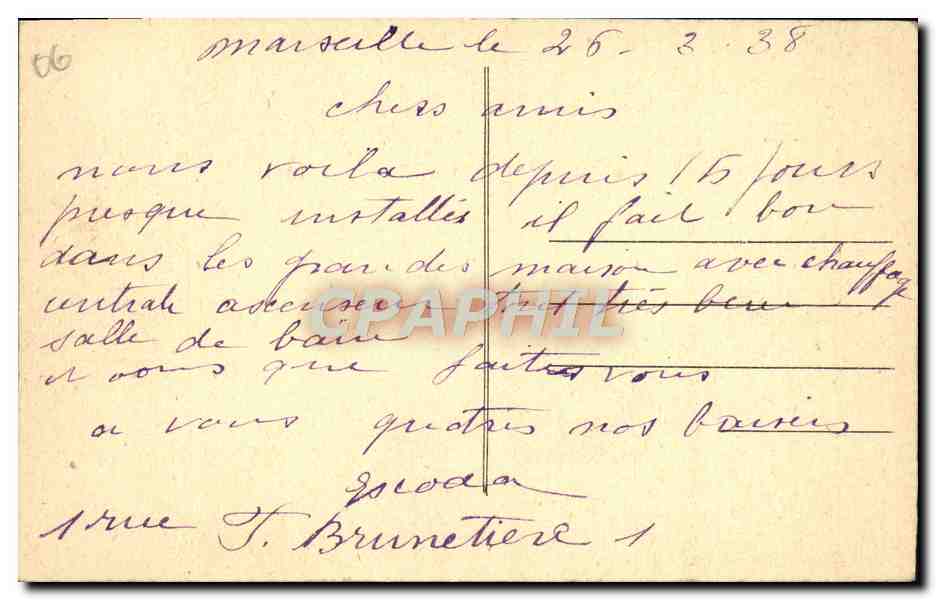 06
marseille le 26 - 3 . 38
chers amis
nous voila depuis 15 jours
presque installés il fait bon
dans les grandes maison avec chauffage
centrale ascenseur tout très bien
salle de bain
et vous que faites vous
a vous quatres nos baisers
Escoda
1 rue F. Brunetiere 1
CPAPHIL